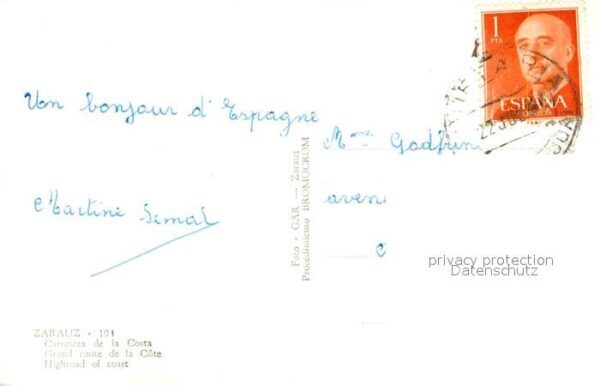 Un bonjour d'Espagne
Martine
ZARAUZ - 104
Carretera de la Costa
Grand route de la Côte
Highroad of coast
Foto - GAR — Zarauz
Procedimiento BROMOCROM
Mme
aven
1
PTA
ESPAÑA
CORREOS
22
privacy protection
Datenschutz